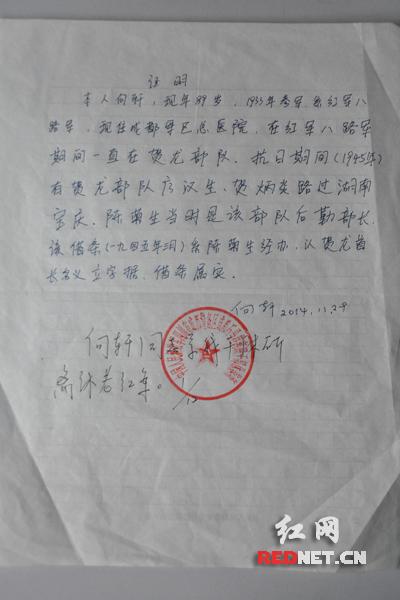 证明
本人向轩，现年89岁，1933年参军，系红军八
路军，现住成都军区总医院，在红军八路军
期间一直在贺龙部队。抗日期间（1945年）
有贺龙部队廖汉生、贺炳炎路过湖南
宝庆。陈菊生当时是该部队后勤部长，
该借条（一九四五年三月）系陈菊生经办，以贺龙首
长名义立字据，借条属实。
向轩 2014.11.29
向轩同
离休老红军。
1/12
红网
REDNET.CN